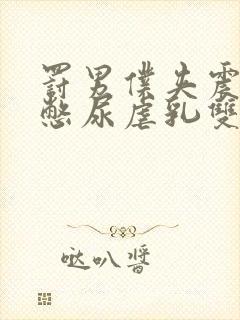 罰男僕失震
憋尿虐乳雙
哒叭醬